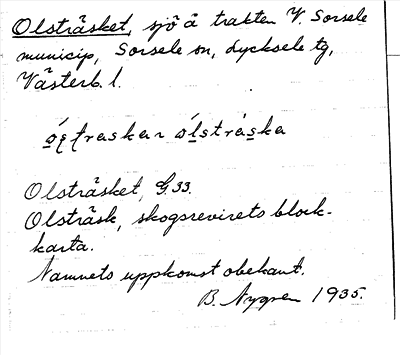 Olsträsket, sjö å trakten V. Sorsele
municip, Sorsele sn, Lycksele tg,
Västerb. l.
ólstráska
Olsträsket, G.33.
Olsträsk, skogsrevirets block-
karta.
Namnets uppkomst obekant.
B. Nygren 1935.